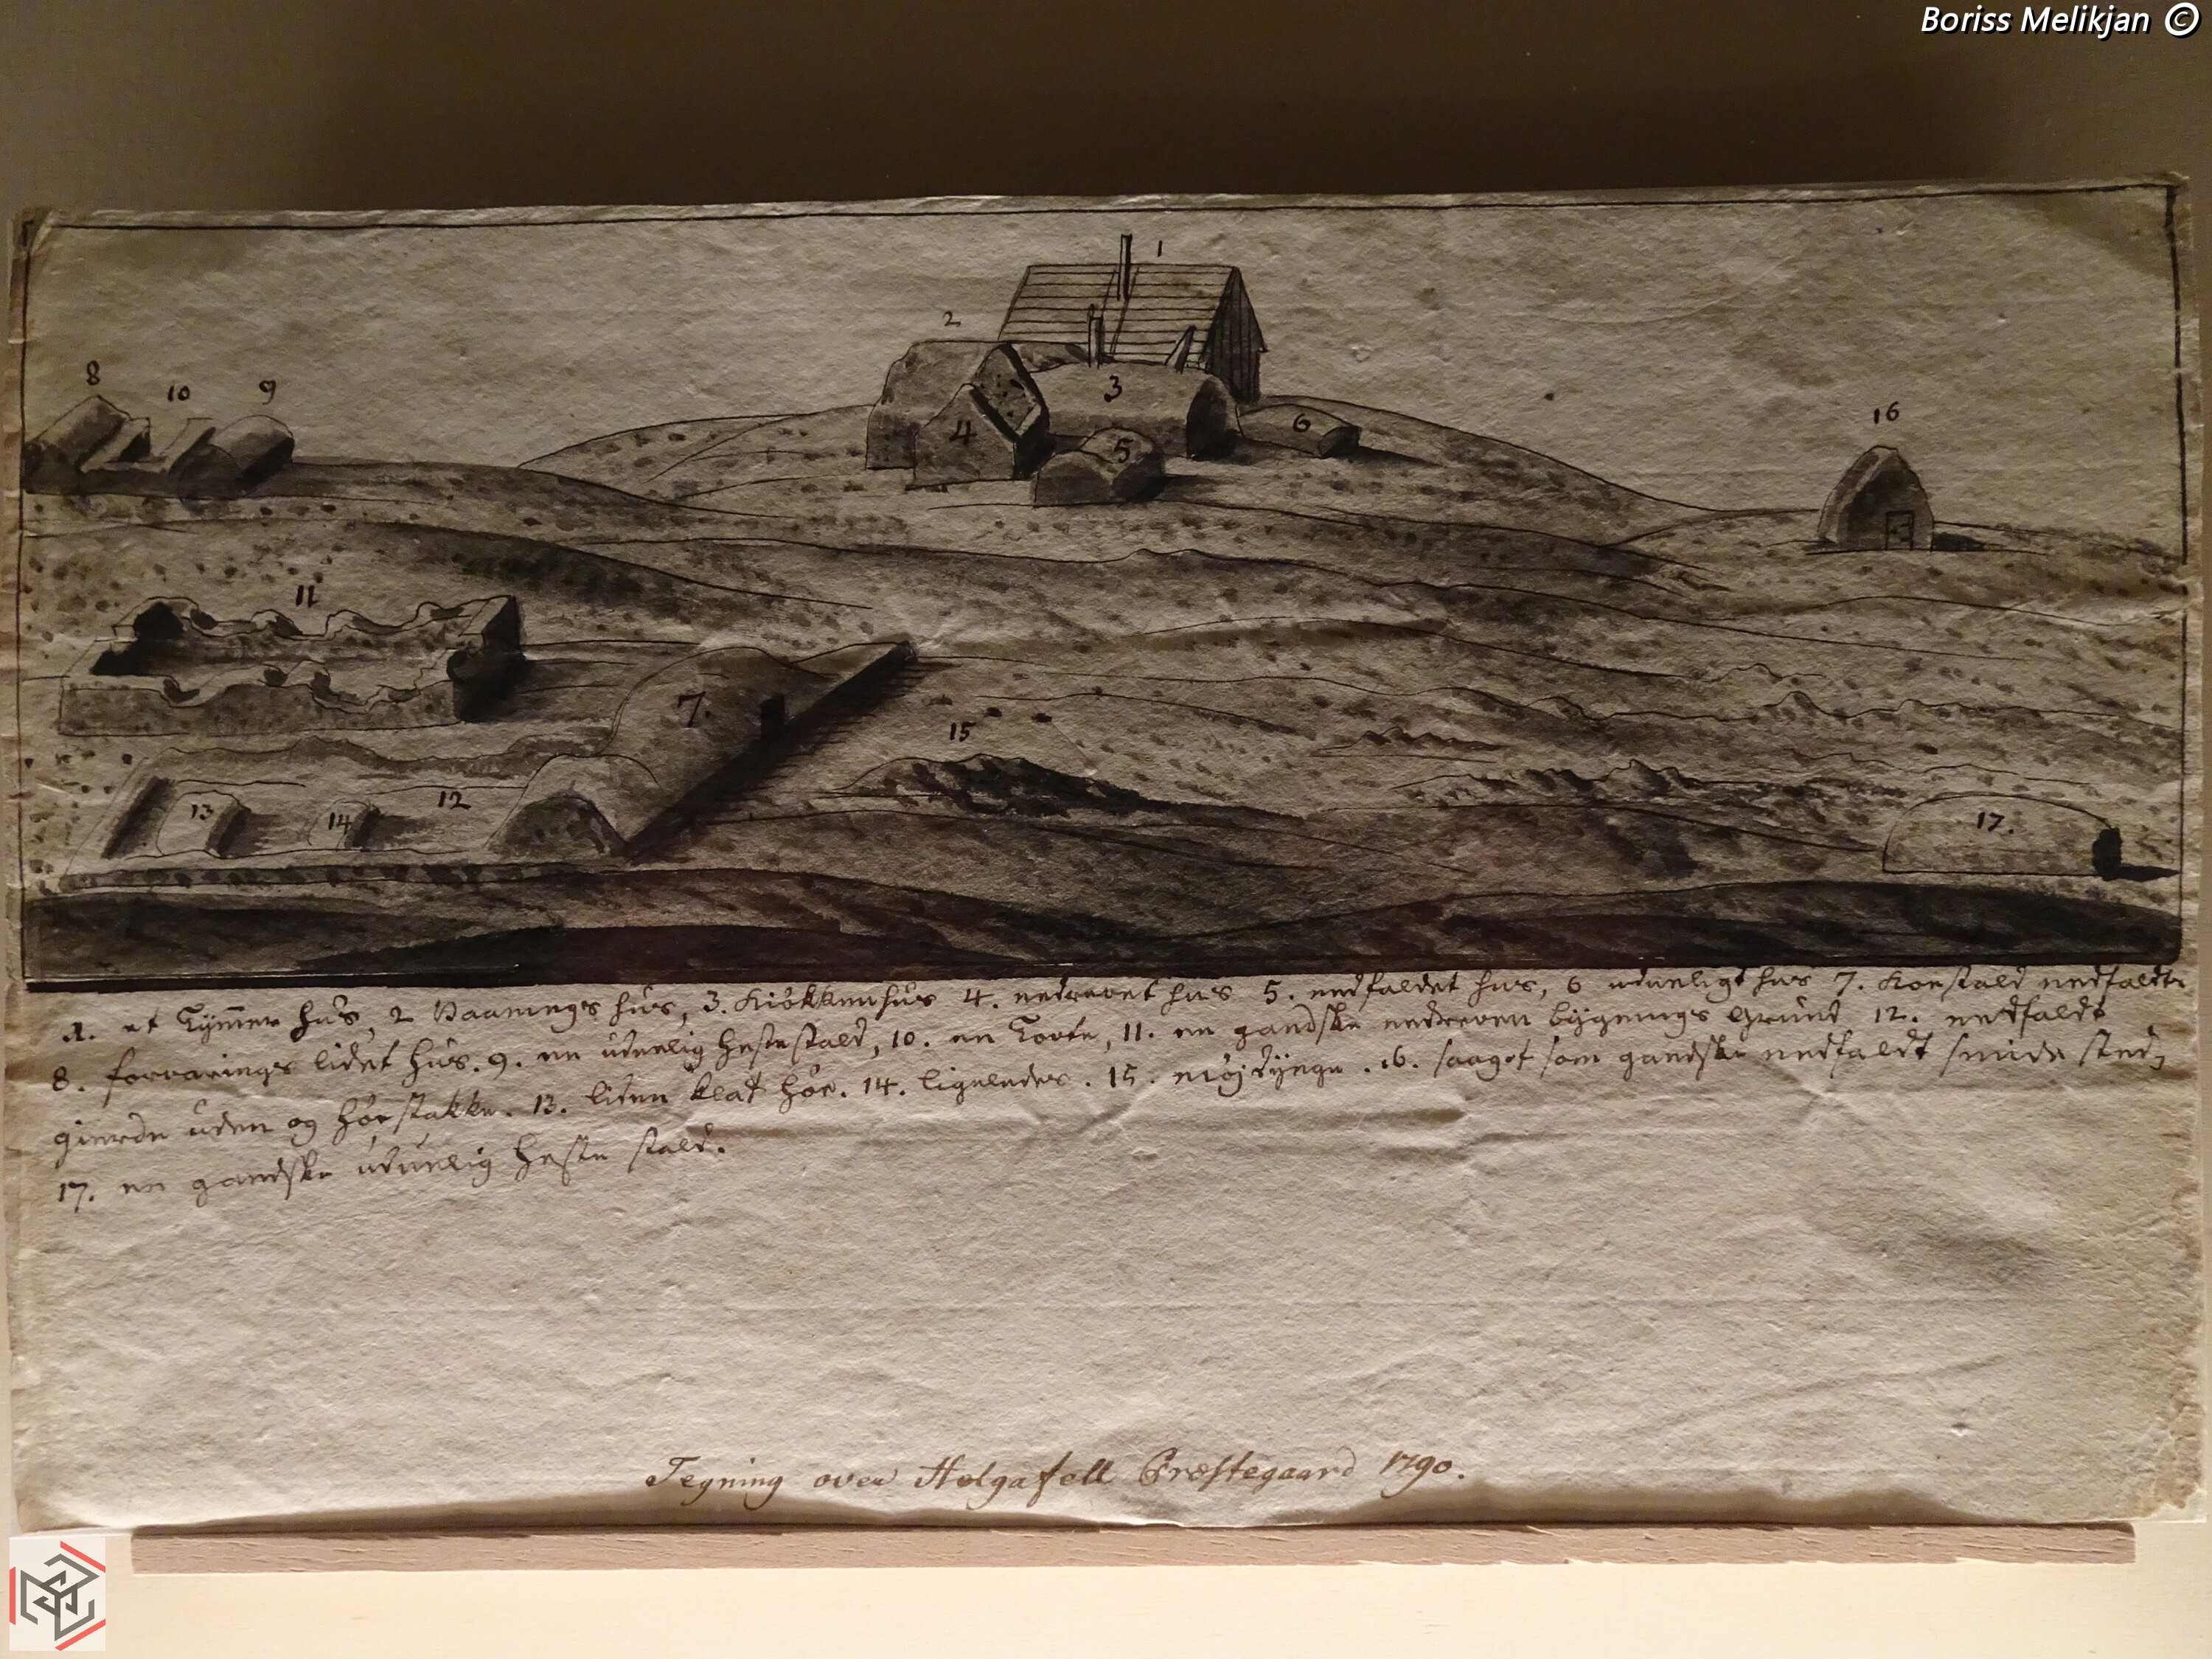 Boriss Melikjan ©
1
2
3
8
10
9
4
5
6
16
11
7.
15
12
13
14
17.
1. et Tÿmmer hŭs, 2 Vaanings hŭs, 3. Kiökkenhŭs 4. nedrevet hus 5. nedfaldet hus, 6 udueligt hus 7. Koestald nedfaldt
8. forvarings lidet hŭs. 9. en ŭduelig hestestald, 10. en Tovte, 11. en gandske nedreven bÿgnings Grŭnd 12. nedfaldt
gierde ŭden og höestakke. 13. liden klat höe. 14. ligeledes. 15. møjdÿnge. 16. saagot som gandske nedfaldt smide sted,
17. en gandske ŭduelig heste stald.
Tegning over Helgafell Præstegaard 1790.